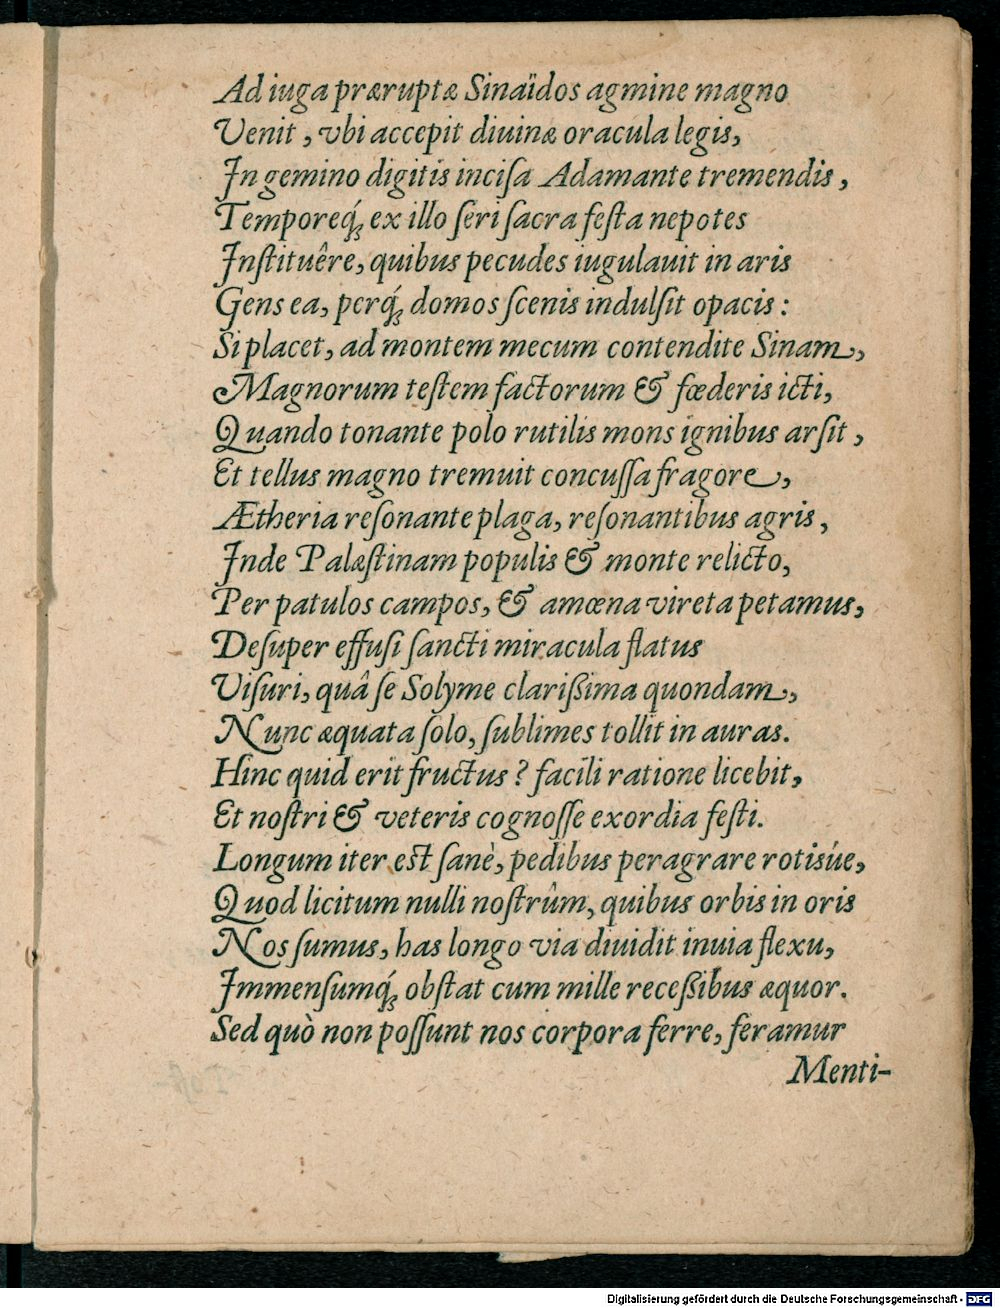 Ad iuga præruptæ Sinaïdos agmine magno
Venit, vbi accepit diuinæ oracula legis,
In gemino digitis inciſa Adamante tremendis,
Temporeq́; ex illo ſeri ſacra feſta nepotes
Inſtituêre, quibus pecudes iugulauit in aris
Gens ea, perq́; domos ſcenis indulſit opacis:
Si placet, ad montem mecum contendite Sinam,
Magnorum teſtem factorum & fœderis icti,
Quando tonante polo rutilis mons ignibus arſit,
Et tellus magno tremuit concuſſa fragore,
Ætheria reſonante plaga, reſonantibus agris,
Inde Palæſtinam populis & monte relicto,
Per patulos campos, & amœna vireta petamus,
Deſuper effuſi ſancti miracula flatus
Viſuri, quâ ſe Solyme clarißima quondam,
Nunc æquata ſolo, ſublimes tollit in auras.
Hinc quid erit fructus? facili ratione licebit,
Et noſtri & veteris cognoſſe exordia feſti.
Longum iter eſt ſanè, pedibus peragrare rotisúe,
Quod licitum nulli noſtrûm, quibus orbis in oris
Nos ſumus, has longo via diuidit inuia flexu,
Immenſumq́; obſtat cum mille receßibus æquor.
Sed quò non poſſunt nos corpora ferre, feramur
Menti-
Digitalisierung gefördert durch die Deutsche Forschungsgemeinschaft - DFG